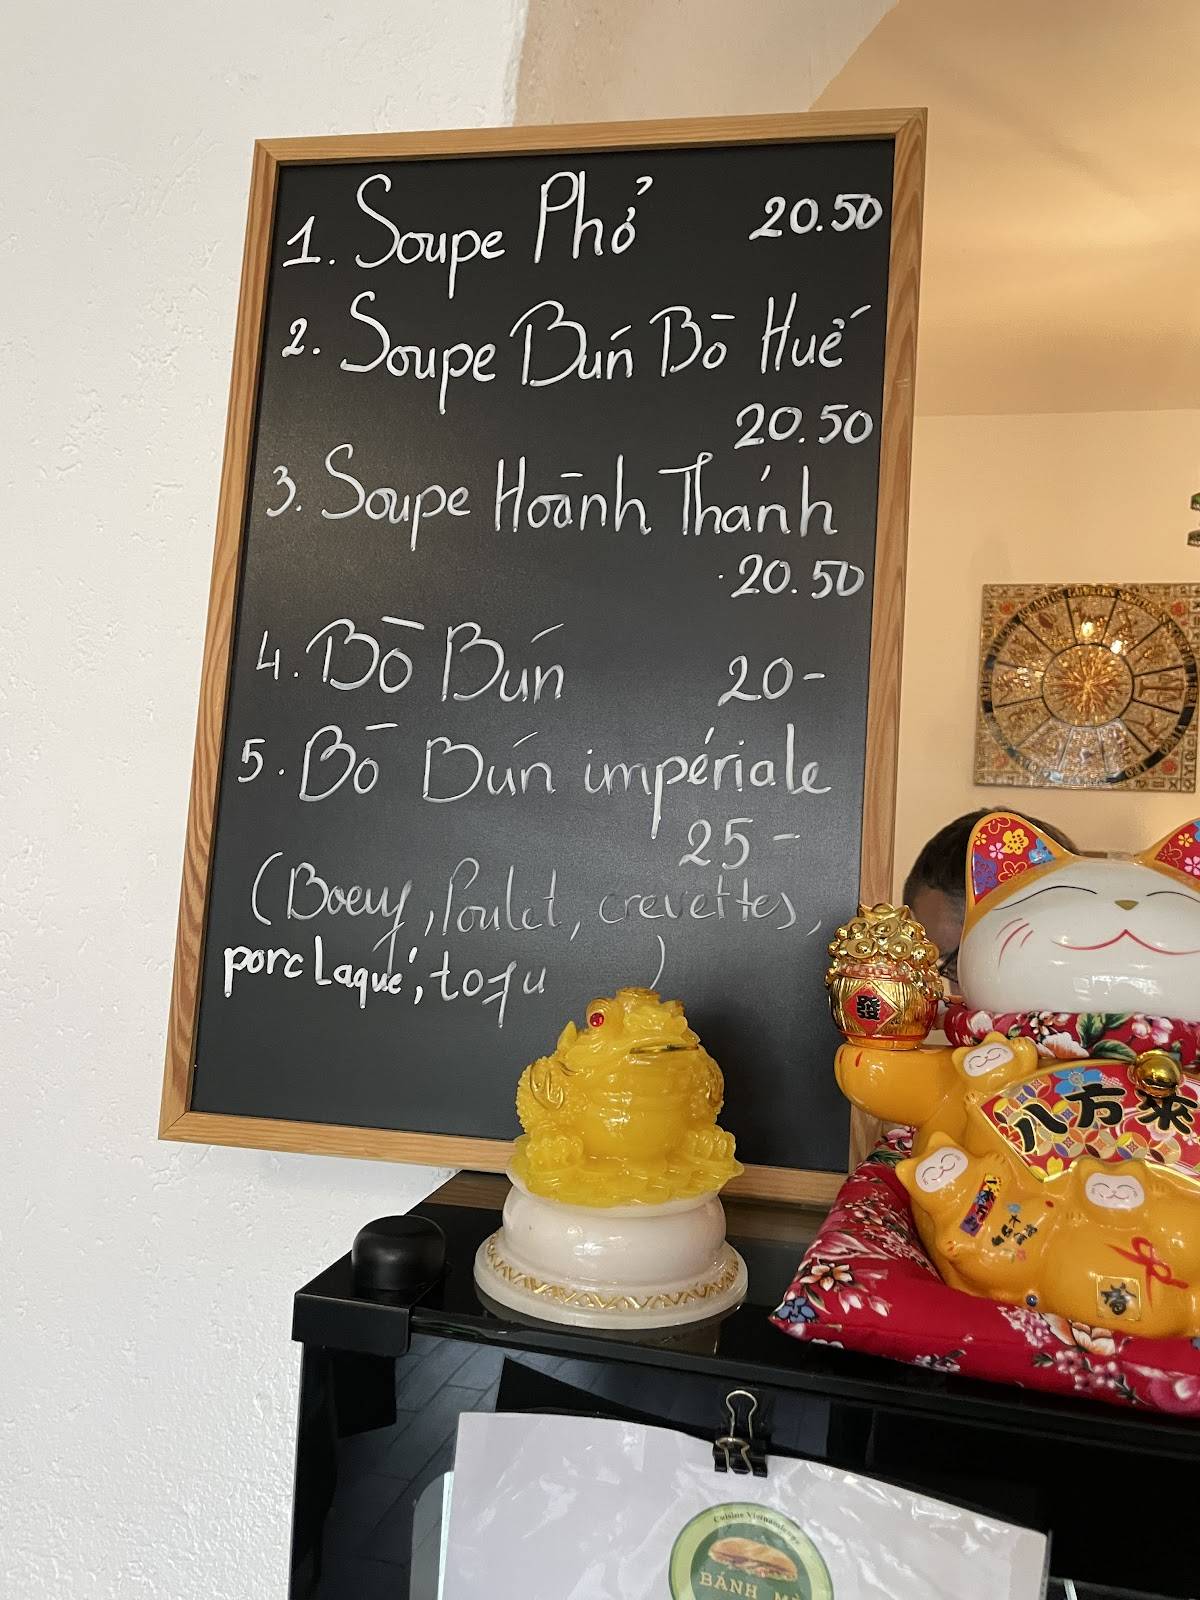 1. Soupe Phở 20.50
2. Soupe Bún Bò Huế
20.50
3. Soupe Hoành Thánh
20.50
4. Bò Bún 20-
5. Bò Bún impériale
25-
(Boeuf, Poulet, crevettes,
porc Laqué, tofu )
發
八方來
Cuisine Vietnamienne
BÁNH MÌ